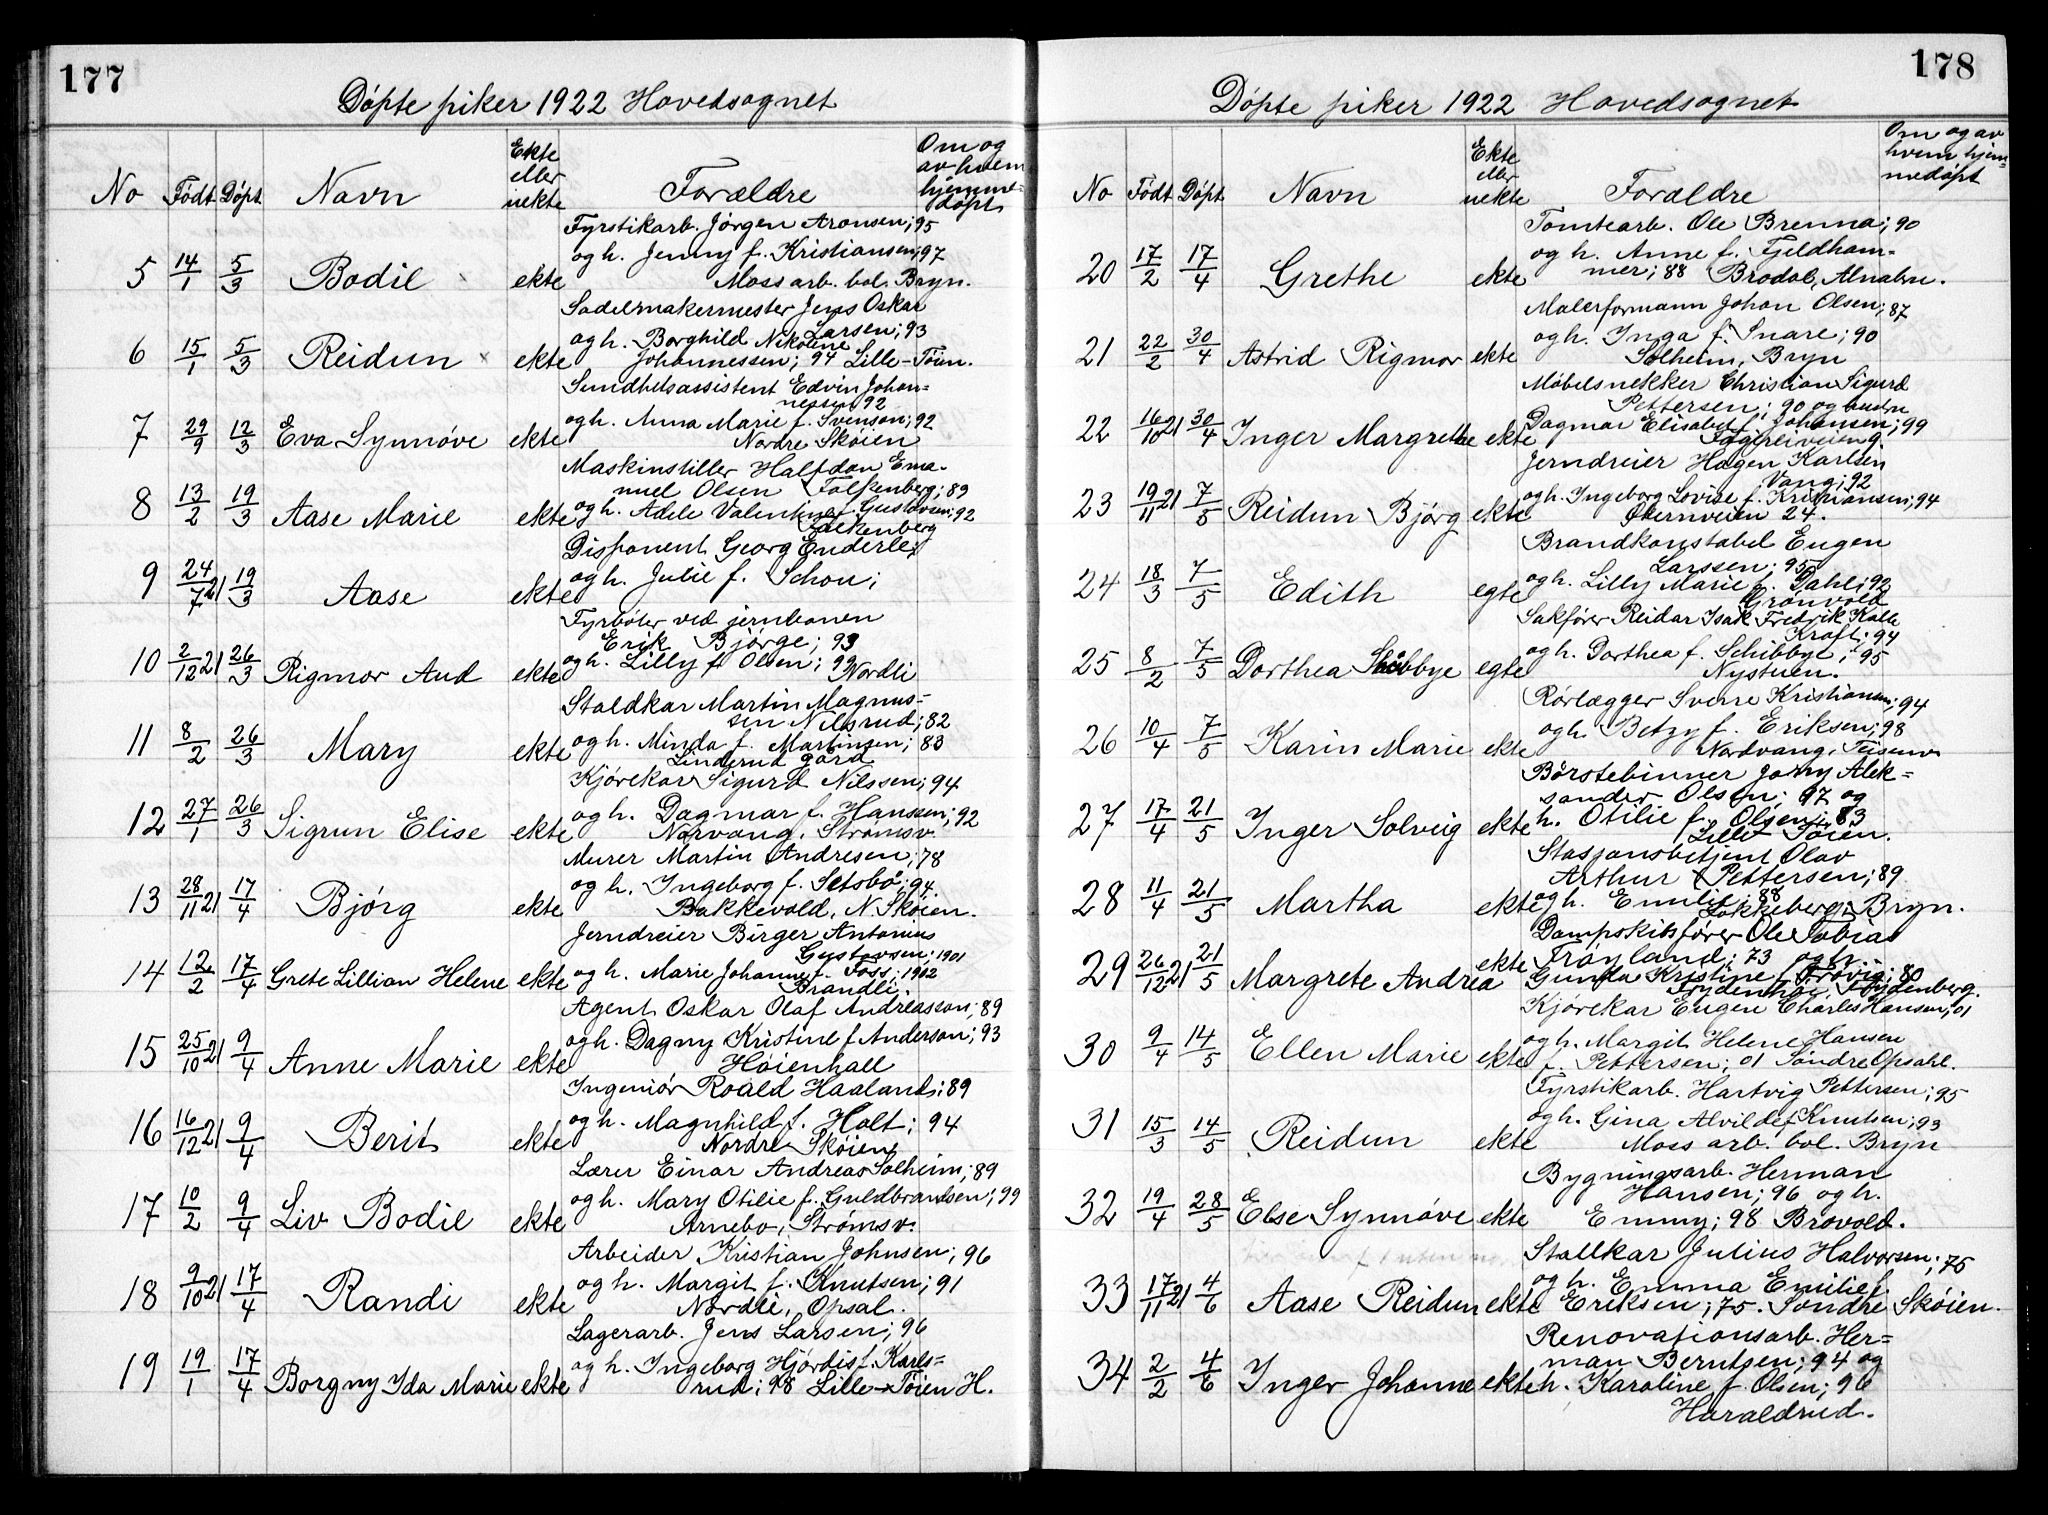 177
Døpte piker 1922 Hovedsognet
No Født Døpt Navn Ekte eller uekte Forældre Om og av hvem hjemmedøpt
Fyrstikarb. Jørgen Aronsen; 95
og h. Jenny f. Kristiansen; 97
5 14/1 5/3 Bodil ekte Moss arb. bol. Bryn.
Sadelmakermester Jens Oskar
Larsen; 93
og h. Borghild Nikoline
6 15/1 5/3 Reidun ekte Johannessen; 94 Lille-Tøien.
Sundhetsassistent Edvin Johan=
nessen 92
og h. Anna Marie f. Svenson; 92
7 29/9 12/3 Eva Synnøve ekte Nordre Skøien
Maskinstiller Halfdan Ema-
nuel Olsen Falkenberg; 89
8 13/2 19/3 Aase Marie ekte og h. Adele Valentine f. Gustavsen; 92
Falkenberg
Disponent Georg Enderle;
og h. Julie f. Schou;
9 24/7 21 19/3 Aase ekte
Fyrbøter ved jernbanen
Erik Bjørge; 93
10 2/12 21 26/3 Rigmor Aud ekte og h. Lilly f. Olsen; 99 Nordli
Staldkar Martin Magnus-
sen Nilsrud; 82
11 8/2 26/3 Mary ekte og h. Minda f. Martinsen; 83
Linderud gård
Kjørekar Sigurd Nilssen; 94
og h. Dagmar f. Hanssen; 92
12 27/1 26/3 Sigrun Elise ekte Norvang, Strømsv.
Murer Martin Andresen; 78
og h. Ingeborg f. Setsbø; 94.
13 28/11 21 17/4 Bjørg ekte Bakkevold, N. Skøien.
Jerndreier Birger Antonius
Gustavsen; 1901
14 12/2 17/4 Grete Lillian Helene ekte og h. Marie Johanne f. Foss; 1902
Brandli.
Agent Oskar Olaf Andreasson; 89
og h. Dagny Kristine f Anderson; 93
15 25/10 21 9/4 Anne Marie ekte Høienhall
Ingeniør Roald Haaland; 89
og h. Magnhild f. Holt; 94
16 16/12 21 9/4 Berit ekte Nordre Skøien
Lærer Einar Andreas Solheim; 89
og h. Mary Otilie f. Guldbrandsen; 99
17 10/2 9/4 Liv Bodil ekte Arnebo, Strømsv.
Arbeider Kristian Johnsen; 96
og h. Margit f. Knutsen; 91
18 9/10 21 17/4 Randi ekte Nordli, Opsal.
Lagerarb. Jens Larsen; 96
og h. Ingeborg Hjørdis f. Karls=
19 19/1 17/4 Borgny Ida Marie ekte rud; 98 Lille-Tøien H.
178
Døpte piker 1922 Hovedsognet
No Født Døpt Navn Ekte eller uekte Forældre Om og av hvem hjemmedøpt
Tomtearb. Ole Brenna; 90
og h. Anne f. Fjeldham-
20 17/2 17/4 Grethe ekte mer; 88 Brodal, Alnabru.
Malerformann Johan Olsen; 87
og h. Inga f. Snare; 90
21 22/2 30/4 Astrid Rigmor ekte Solheim, Bryn
Møbelsnekker Christian Sigurd
Pettersen; 90 og hustru
Dagmar Elisabet f. Johansen; 99
22 16/10 21 30/4 Inger Margrethe ekte
Jerndreier Hagen Karlsen
Vang; 92
23 19/11 21 7/5 Reidun Bjørg ekte og h. Ingeborg Lovise f. Kristiansen; 94
24.
Brandkonstabel Eugen
Larssen; 95
24 18/3 7/5 Edith egte og h. Lilly Marie f. Dahl; 92
Grønvold
Sakfører Reidar Isak Fredrik Kolle
Kraft; 94
25 8/2 7/5 Dorthea Skibbye egte og h. Dorthea f. Schibbye; 95
Nystuen.
Rørlægger Sverre Kristiansen; 94
og h. Betzy f. Eriksen; 98
26 10/4 7/5 Karin Marie ekte Nordvang, Teisenv
Børstebinner Jonny Alek=
sander Olsen; 97 og
27 17/4 21/5 Inger Solveig ekte h. Otilie f. Olsen; 83
Lille Tøien.
Stasjonsbetjent Olav
Arthur Pettersen; 89
28 11/4 21/5 Martha ekte og h. Emilie; 88
Løkkeberg, Bryn.
Dampskibsfører Ole Tobias
Frøyland; 73 og h.
29 26/12 21 21/5 Margrete Andrea ekte Gunda Kristine f. Frøvig; 80
Frydenhøi Frydenberg.
Kjørekar Eugen Charles Hansen; 01
og h. Margit Helene Hansen
30 9/4 14/5 Ellen Marie ekte f. Pettersen; 01 Søndre Opsahl.
Fyrstikarb. Hartvig Pettersen; 95
og h. Gina Alvilde f Knutsen; 93
31 15/3 14/5 Reidun ekte Moss arb. bol. Bryn
Bygningsarb. Herman
Hansen; 96 og h.
32 19/4 28/5 Else Synnøve ekte Emmy; 98 Brovold.
Stallkar Julius Halvorsen; 75
og h. Emma Emilie f.
33 17/11 21 4/6 Aase Reidun ekte Eriksen; 75. Søndre Skøien.
Renovationsarb. Her=
man Berntsen; 94 og
34 2/2 4/6 Inger Johanne ekte h. Karoline f. Olsen; 96
Haraldrud.